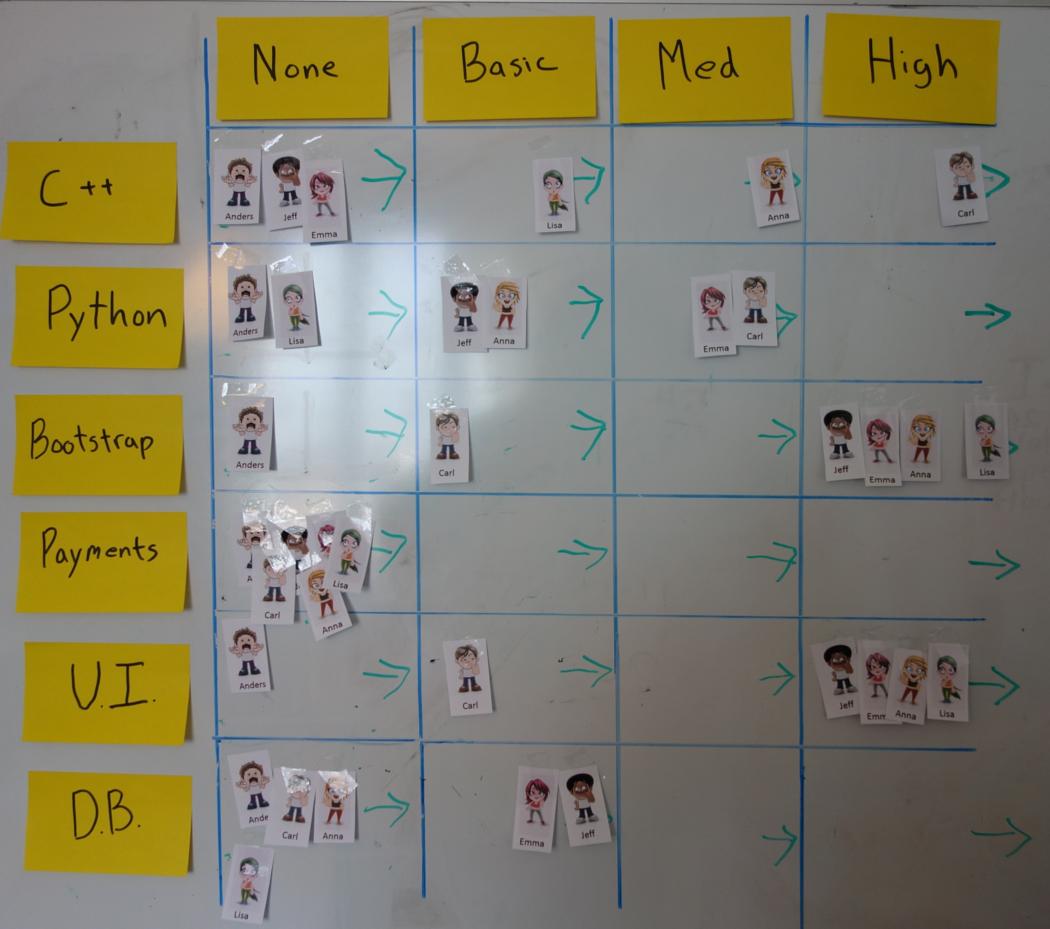 None Basic Med High
C++
Anders Jeff Emma Lisa Anna Carl
Python
Anders Lisa Jeff Anna Emma Carl
Bootstrap
Anders Carl Jeff Emma Anna Lisa
Payments
A Carl Anna Lisa
U.I.
Anders Carl Jeff Emm Anna Lisa
D.B.
Ande Carl Anna Emma Jeff
Lisa